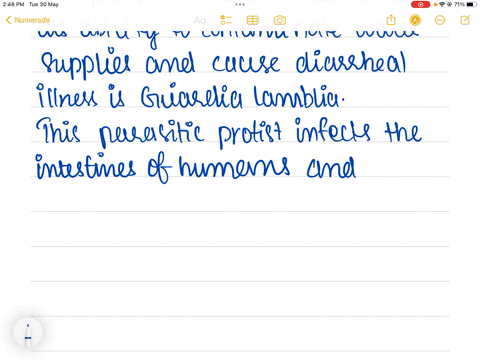 2:48 PM Tue 30 May
71%
Numerade
Aa
its ability to contaminate water
Supplies and cause diarrheal
illness is Guardia Lamblia.
This parasitic protist infects the
intestines of humans and